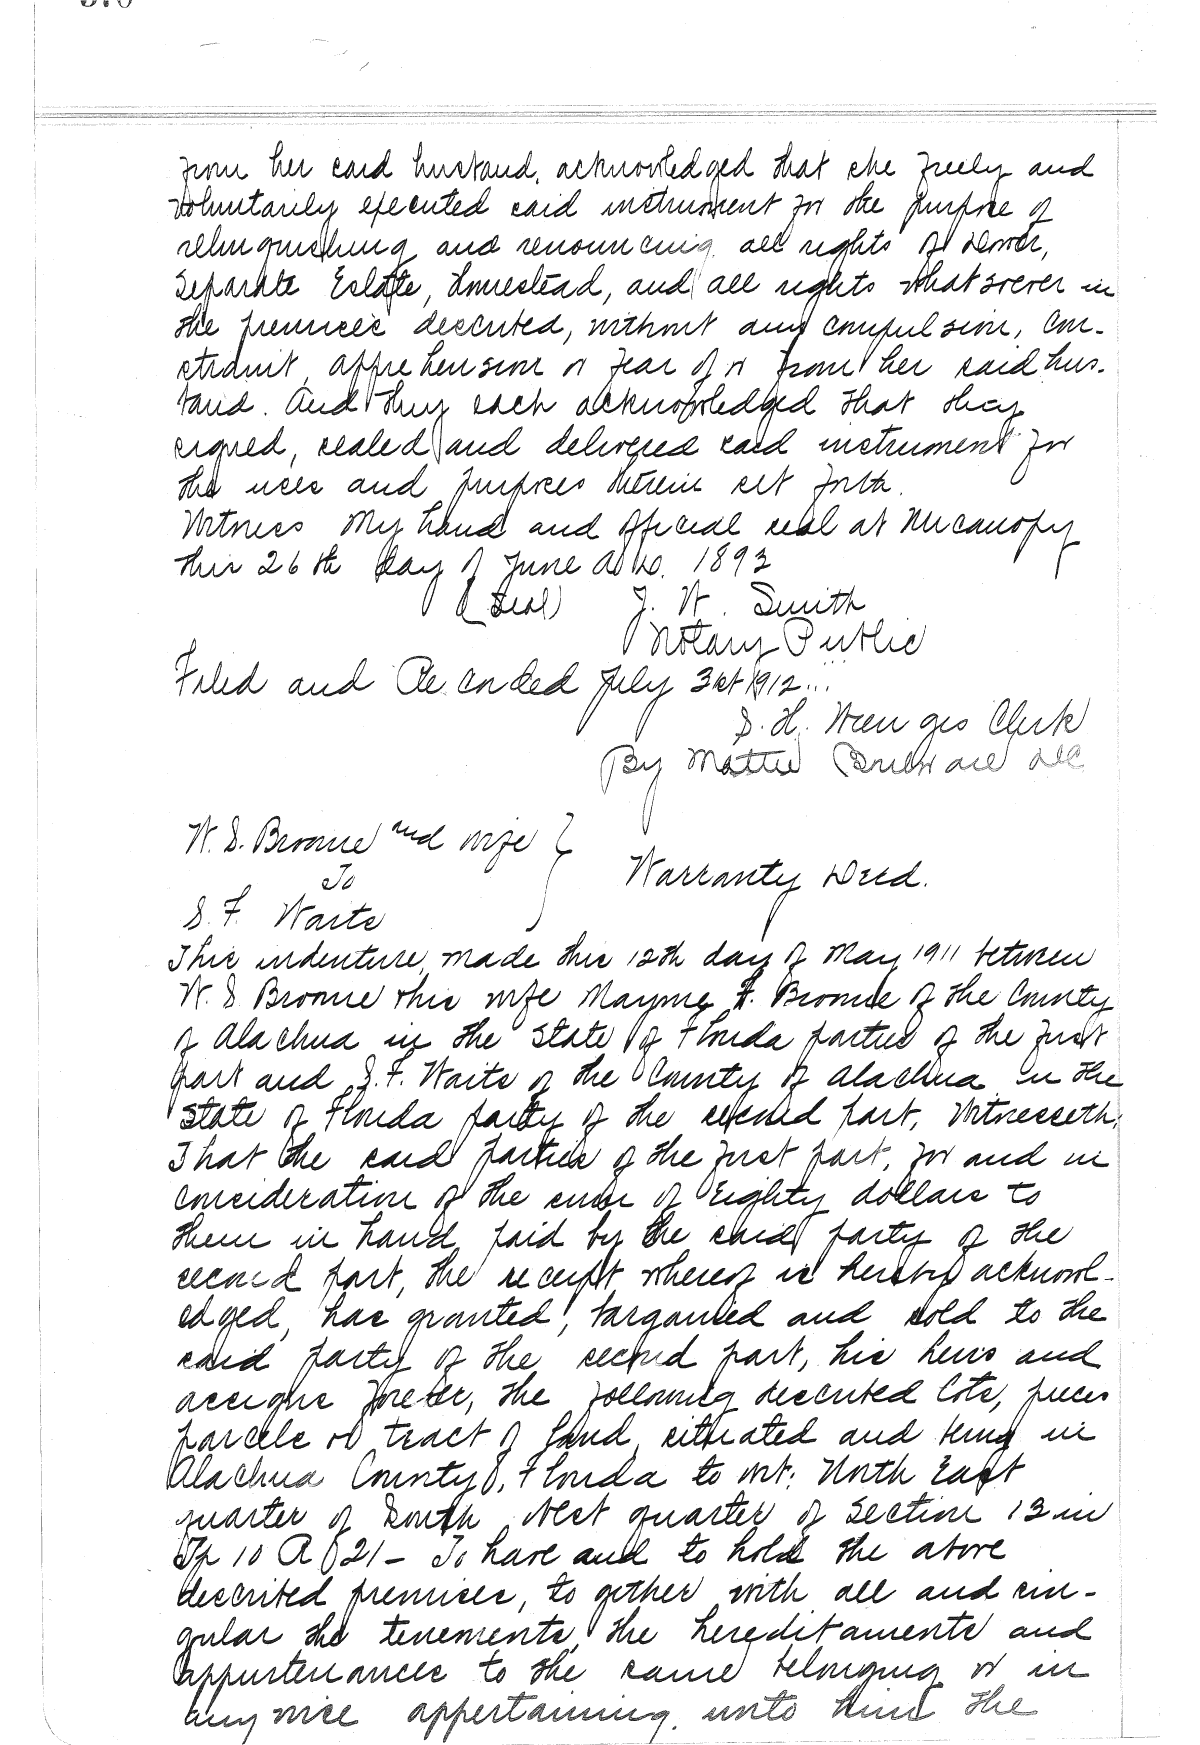 from her said husband, acknowledged that she freely and
voluntarily executed said instrument for the purpose of
relinquishing and renouncing all rights of Dower,
Separate Estate, Homestead, and all rights whatsoever in
the premises described, without any compulsion, con-
straint, apprehension or fear of or from her said hus-
band. And they each acknowledged that they
signed, sealed and delivered said instrument for
the uses and purposes therein set forth.
Witness My hand and official seal at Micanopy
this 26th day of June A.D. 1893
(Seal) J. W. Smith
Notary Public
Filed and Recorded July 31st 1912...
S. H. Wienges Clerk
By Mattie
W. S. Broome and wife
To
Warranty Deed.
S. F. Waits
This indenture, made this 12th day of May 1911 between
W. S. Broome & his wife Mayme F. Broome of the County
of Alachua in the State of Florida parties of the first
part and S. F. Waits of the County of Alachua in the
State of Florida party of the second part, Witnesseth,
That the said parties of the first part, for and in
consideration of the sum of Eighty dollars to
them in hand paid by the said party of the
second part, the receipt whereof is hereby acknowl-
edged, has granted, bargained and sold to the
said party of the second part, his heirs and
assigns forever, the following described lots, pieces
parcels or tract of land, situated and being in
Alachua County, Florida to wit: North East
quarter of South West quarter of Section 13 in
Tp 10 R 21 - To have and to hold the above
described premises, to gether with all and sin-
gular the tenements, the hereditaments and
appurtenances to the same belonging or in
any wise appertaining, unto him the